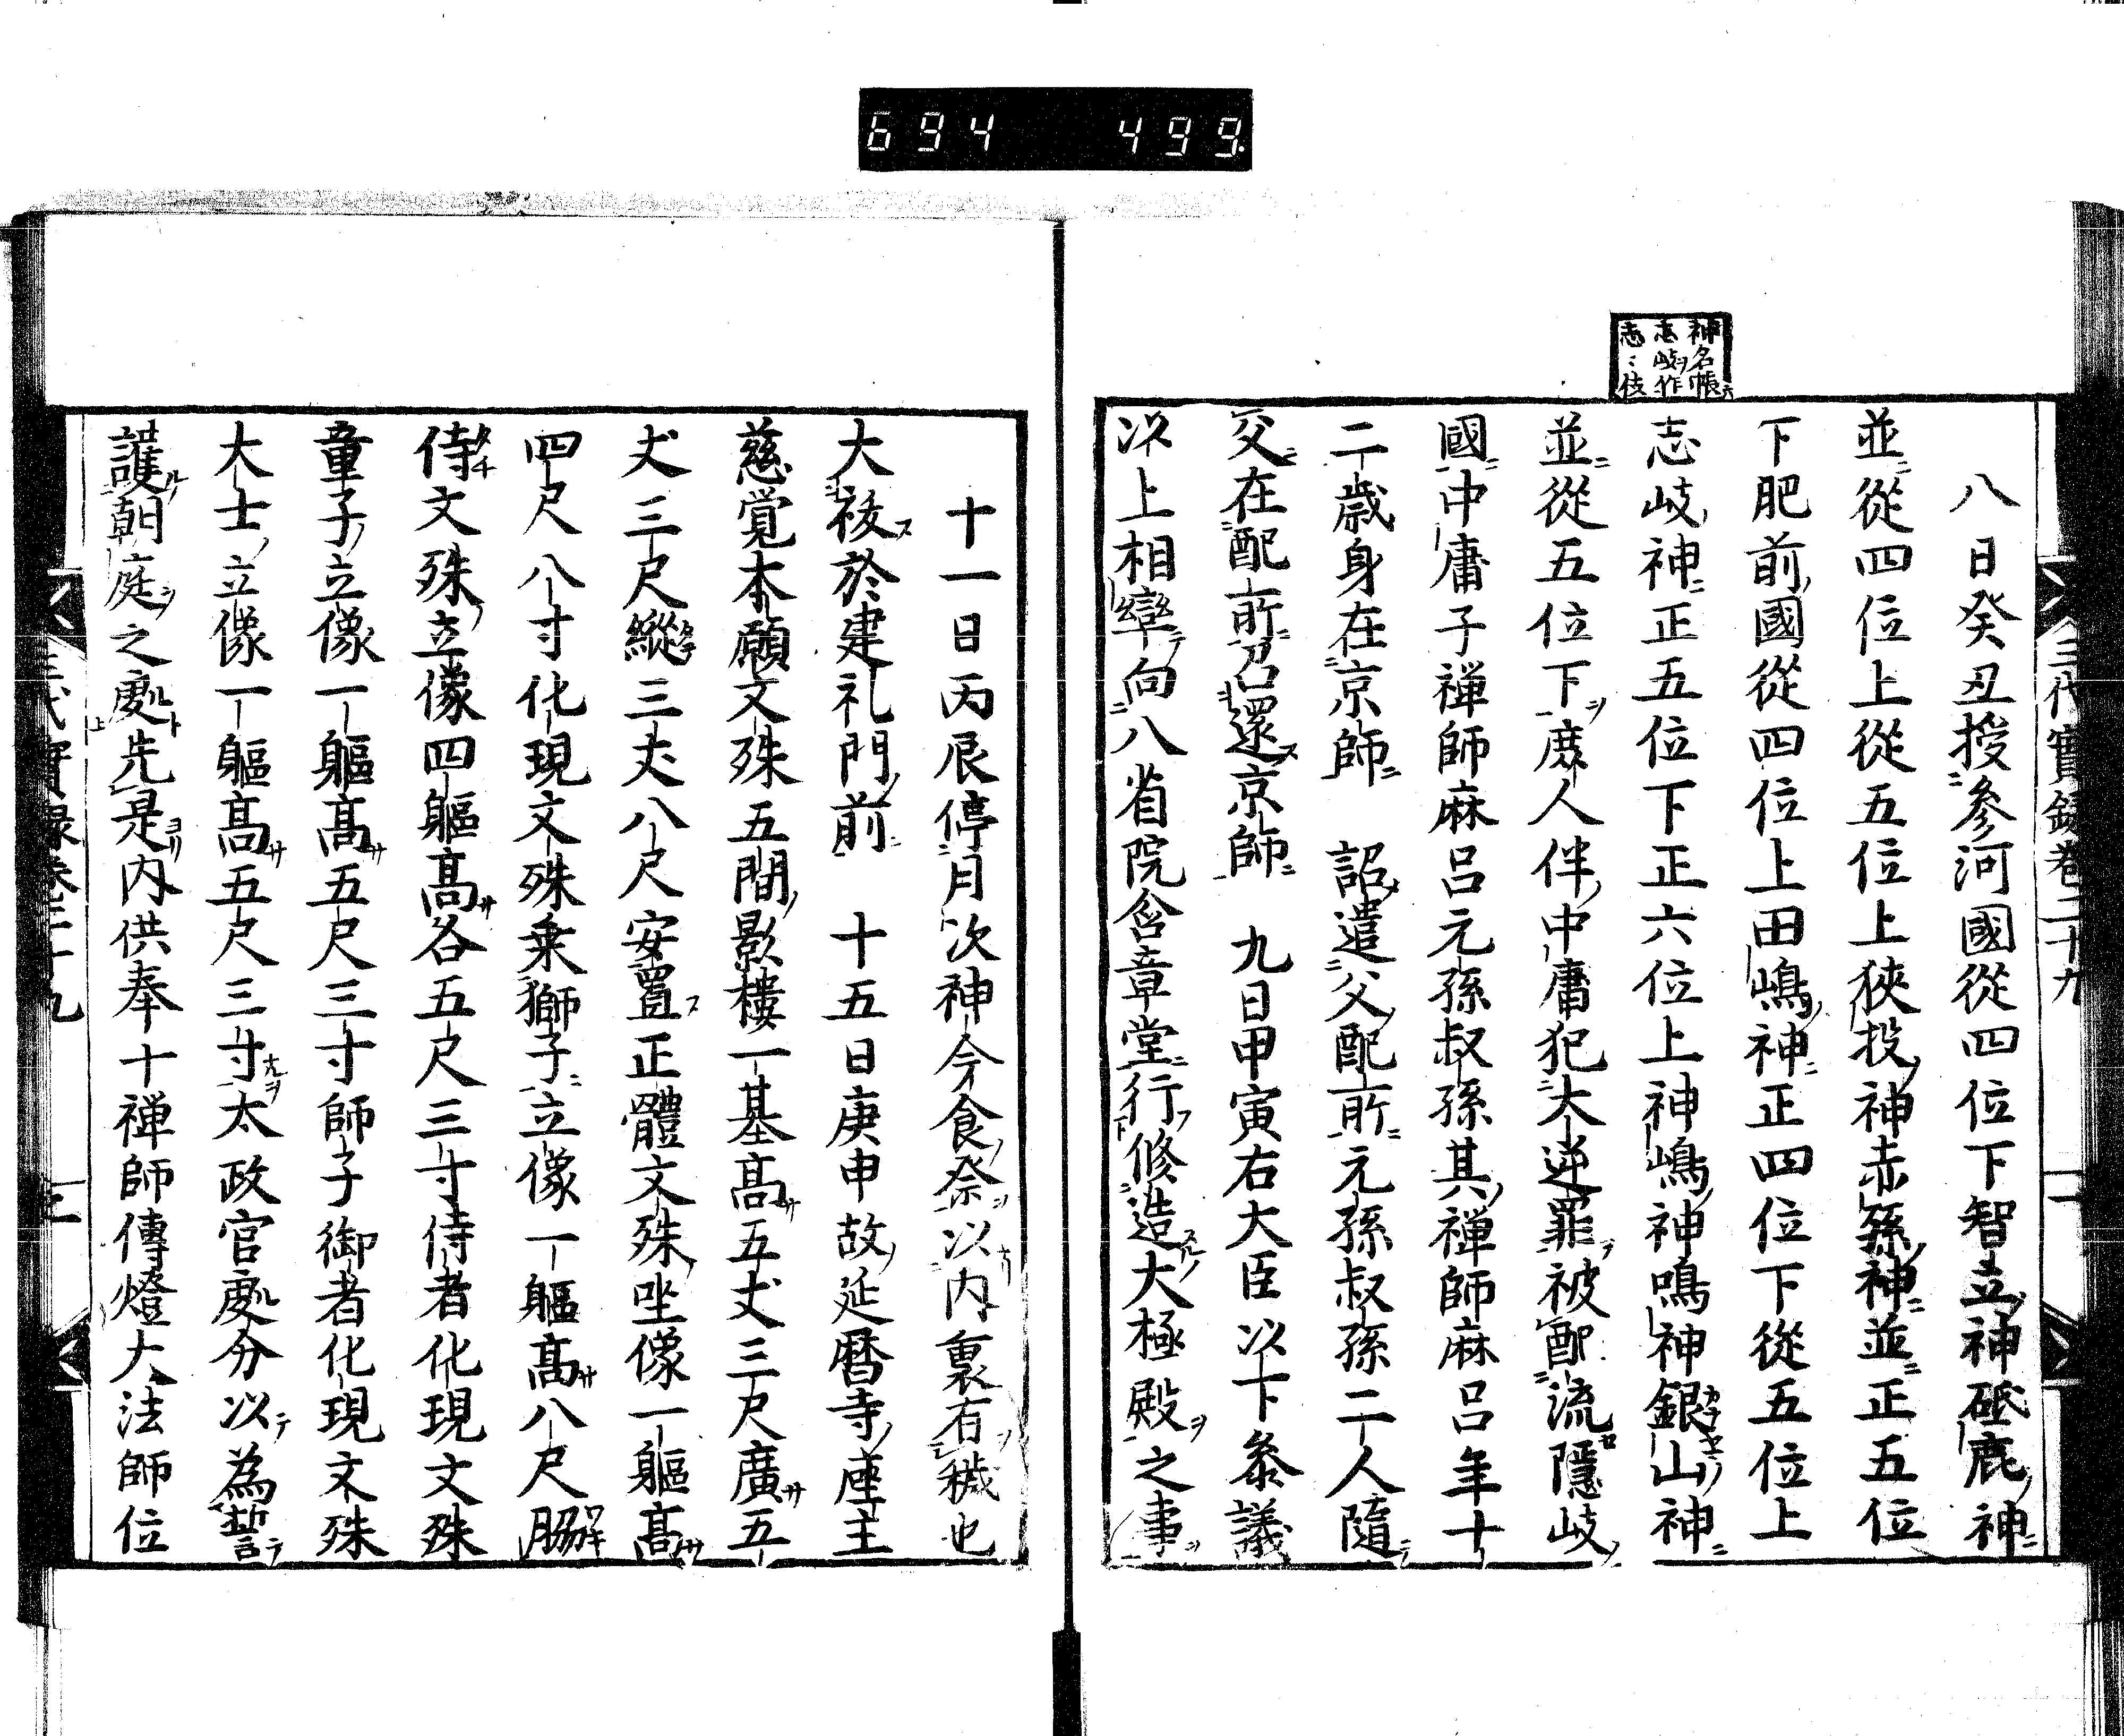 694 499
三代實録卷二十九 二
神名帳
志岐作
志々伎
八日癸丑授參河國從四位下智立神砥鹿神
並從四位上從五位上狹投神赤孫神並正五位
下肥前國從四位上田嶋神正四位下從五位上
志岐神正五位下正六位上神嶋神鳴神銀山神
並從五位下庶人伴中庸犯大逆罪被配流隱岐
國中庸子禅師麻呂元孫叔孫其禅師麻呂年十
二歳身在京師 詔遣父配所元孫叔孫二人隨
父在配所召還京師 九日甲寅右大臣以下叅議
以上相率向八省院含章堂行修造大極殿之事
十一日丙辰停月次神今食祭以内裏有穢也
大祓於建礼門前 十五日庚申故延暦寺座主
慈覚本願文殊五間影樓一基髙五丈三尺廣五
丈三尺縱三丈八尺安置正體文殊坐像一軀髙
四尺八寸化現文殊乗獅子立像一軀髙八尺脇
侍文殊立像四軀髙各五尺三寸侍者化現文殊
童子立像一軀髙五尺三寸師子御者化現文殊
大士立像一軀髙五尺三寸太政官處分以為誓
護朝庭之處先是内供奉十禅師傳燈大法師位
三代實録卷二十九